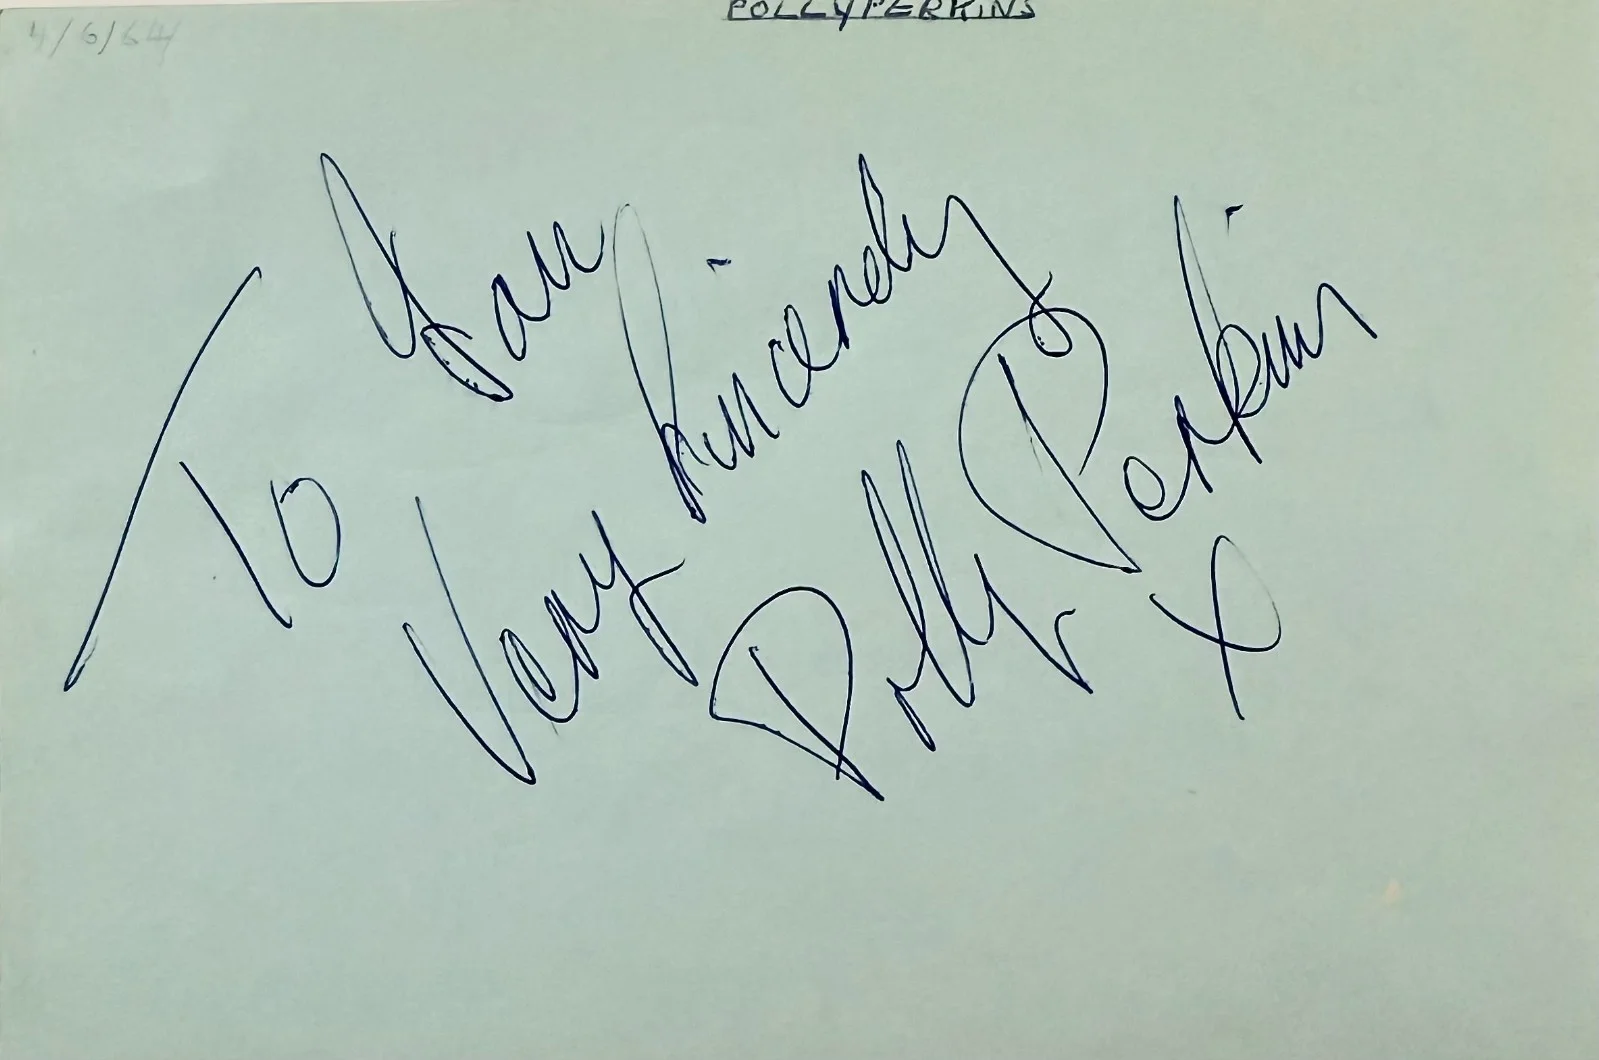 4/6/64
POLLY PERKINS
To
Very Sincerely
Polly Perkins
x